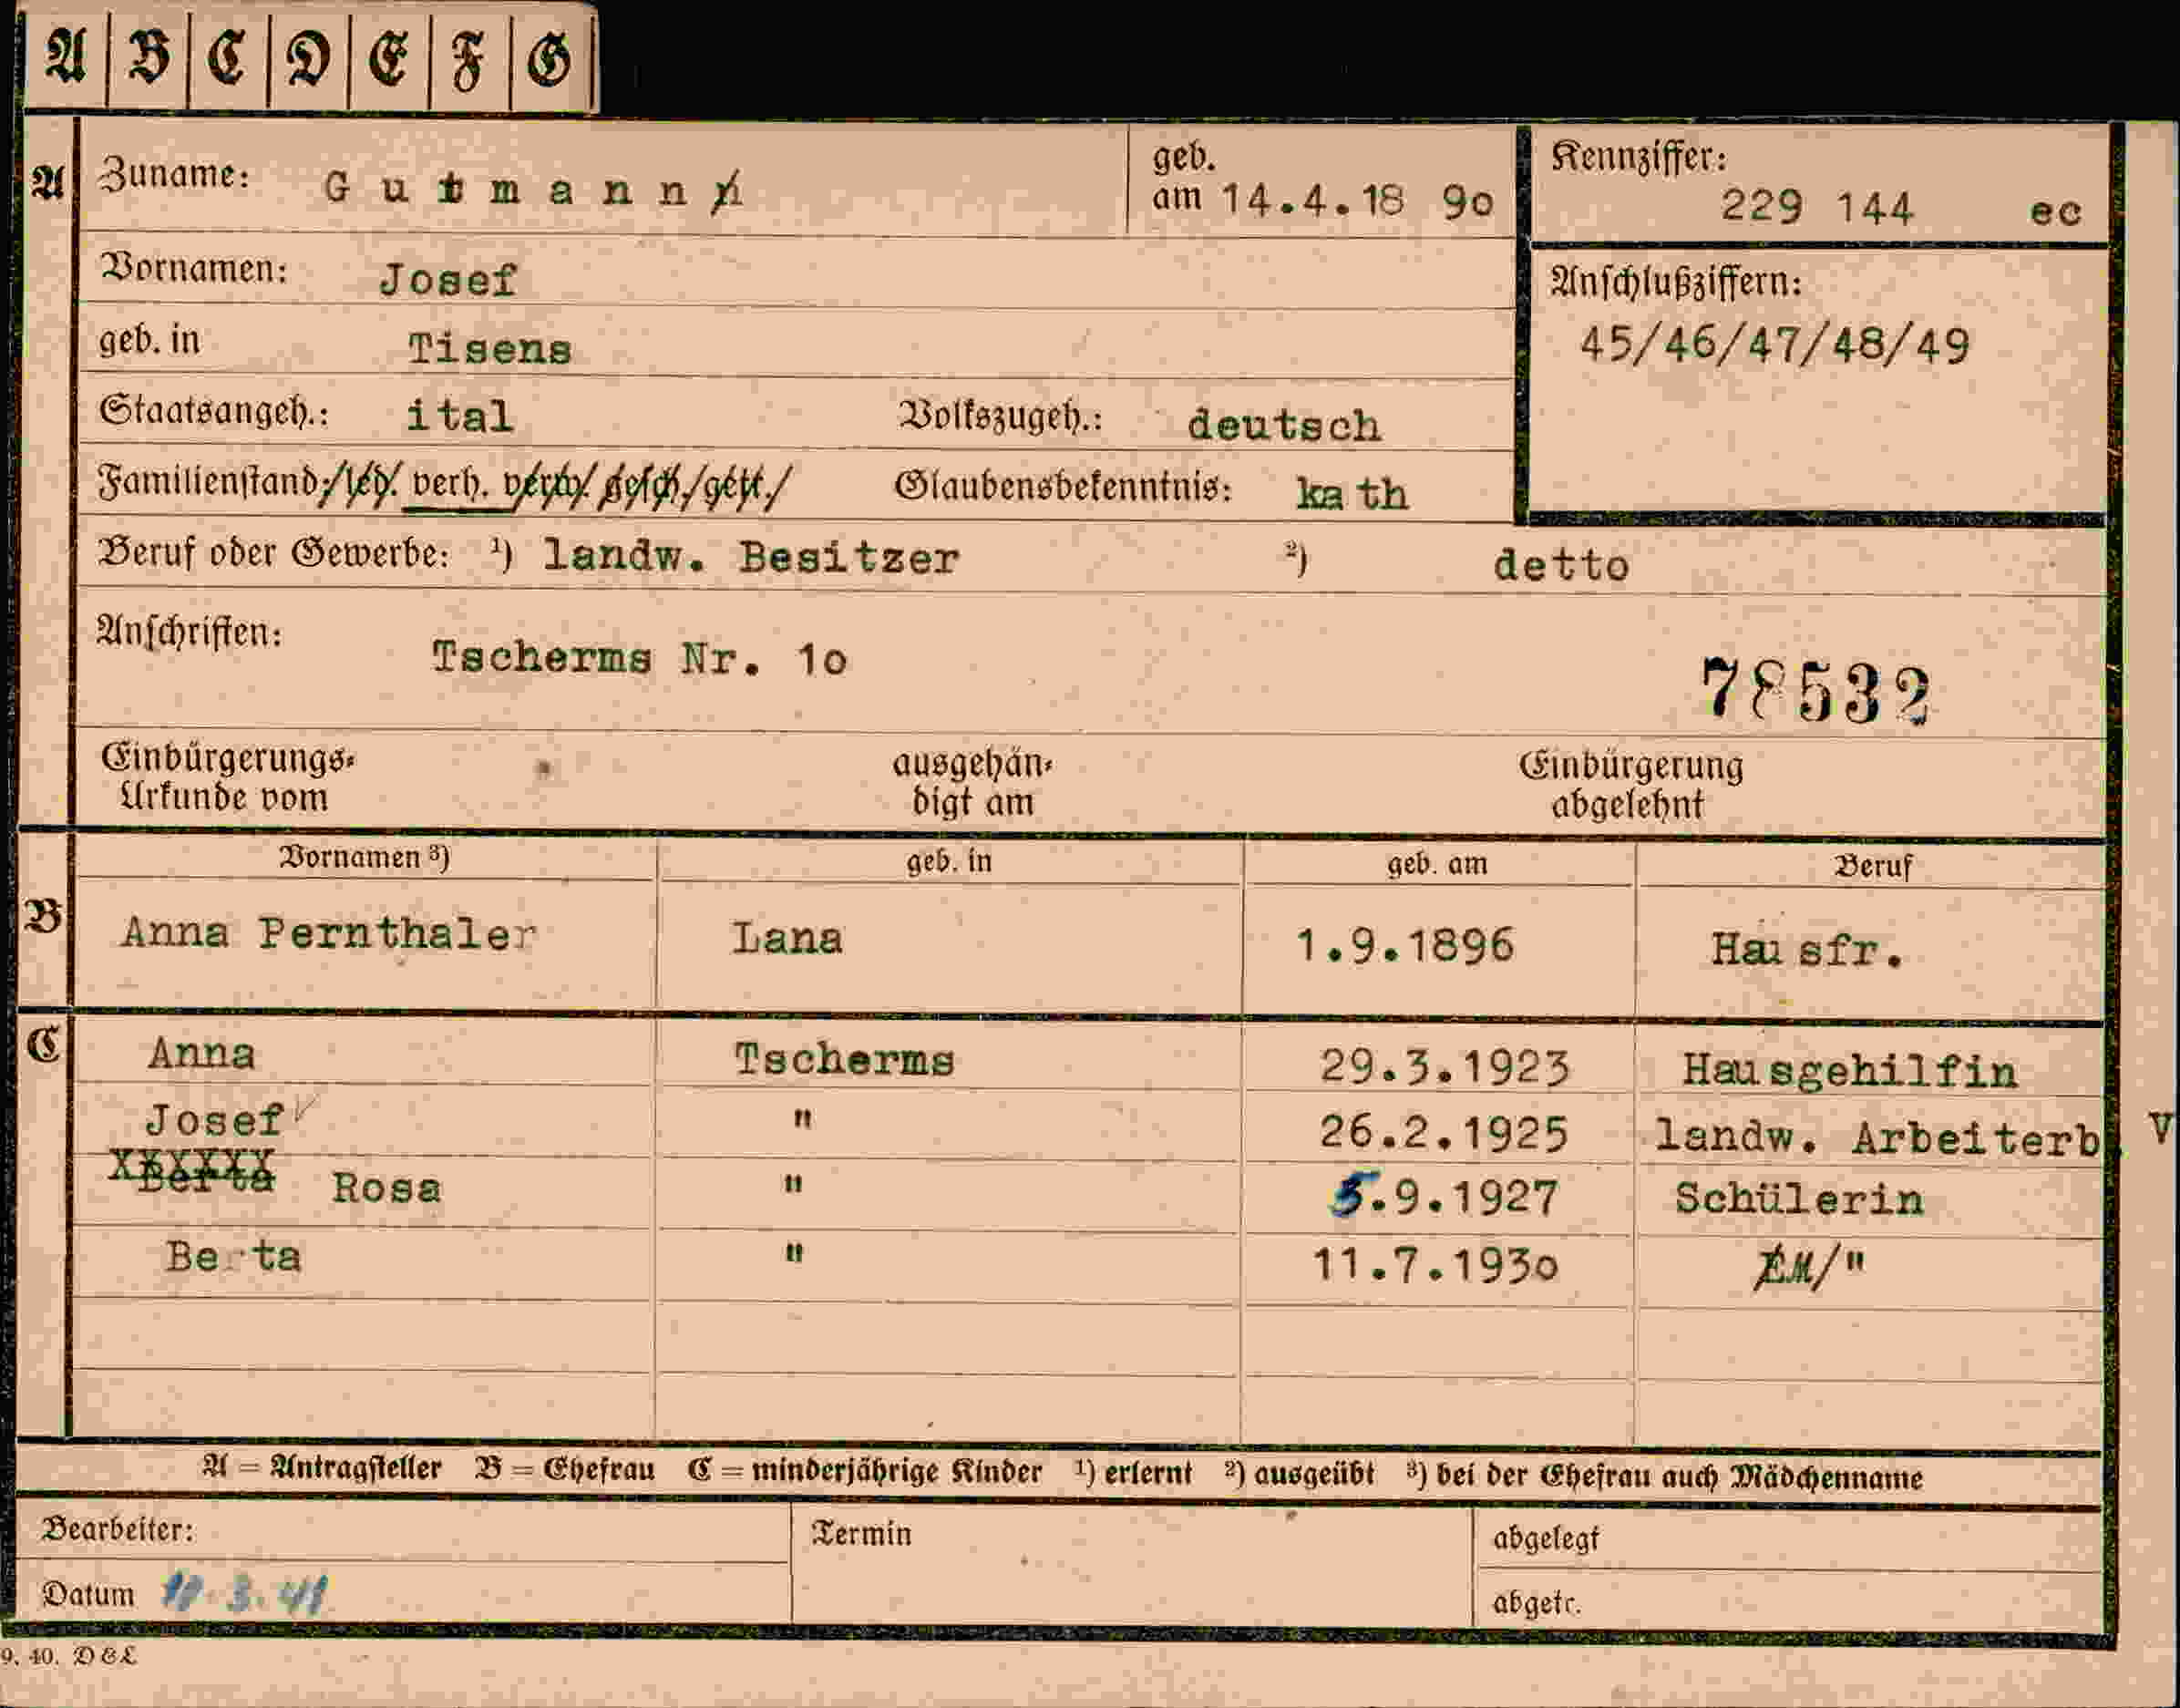 A B C D E F G
A Zuname: Gutmann geb. am 14.4.18 90 Kennziffer: 229 144 ec
Vornamen: Josef
Anschlußziffern:
geb. in Tisens 45/46/47/48/49
Staatsangeh.: ital Volkszugeh.: deutsch
Familienstand: led. verh. verw. gesch. getr. Glaubensbekenntnis: kath
Beruf oder Gewerbe: ¹) landw. Besitzer ²) detto
Anschriften: Tscherms Nr. 1o
78532
Einbürgerungs- Urkunde vom ausgehän- digt am Einbürgerung abgelehnt
Vornamen ³) geb. in geb. am Beruf
B Anna Pernthaler Lana 1.9.1896 Hausfr.
C Anna Tscherms 29.3.1923 Hausgehilfin
Josef " 26.2.1925 landw. Arbeiterb. V
Berta Rosa " 5.9.1927 Schülerin
Berta " 11.7.193o "
A = Antragsteller B = Ehefrau C = minderjährige Kinder ¹) erlernt ²) ausgeübt ³) bei der Ehefrau auch Mädchenname
Bearbeiter: Termin abgelegt
Datum 11.3.41 abgetr.
9. 40. D&L